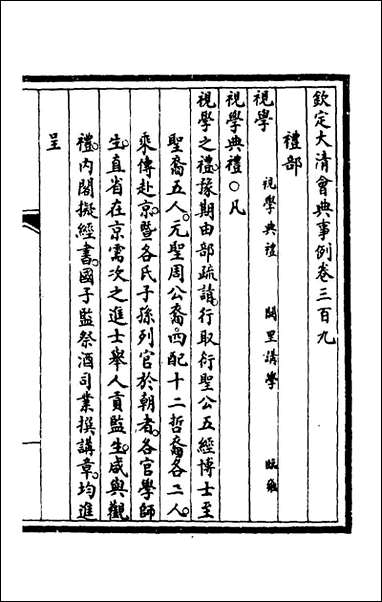 欽定大清會典事例卷三百九
禮部
視學 視學典禮 闕里講學 臨雍
視學典禮○凡
視學之禮豫期由部疏請行取衍聖公五經博士至
聖裔五人元聖周公裔四配十二哲裔各二人
乘傳赴京暨各氏子孫列官於朝者各官學師
生直省在京需次之進士舉人貢監生咸與觀
禮內閣擬經書國子監祭酒司業撰講章均進
呈